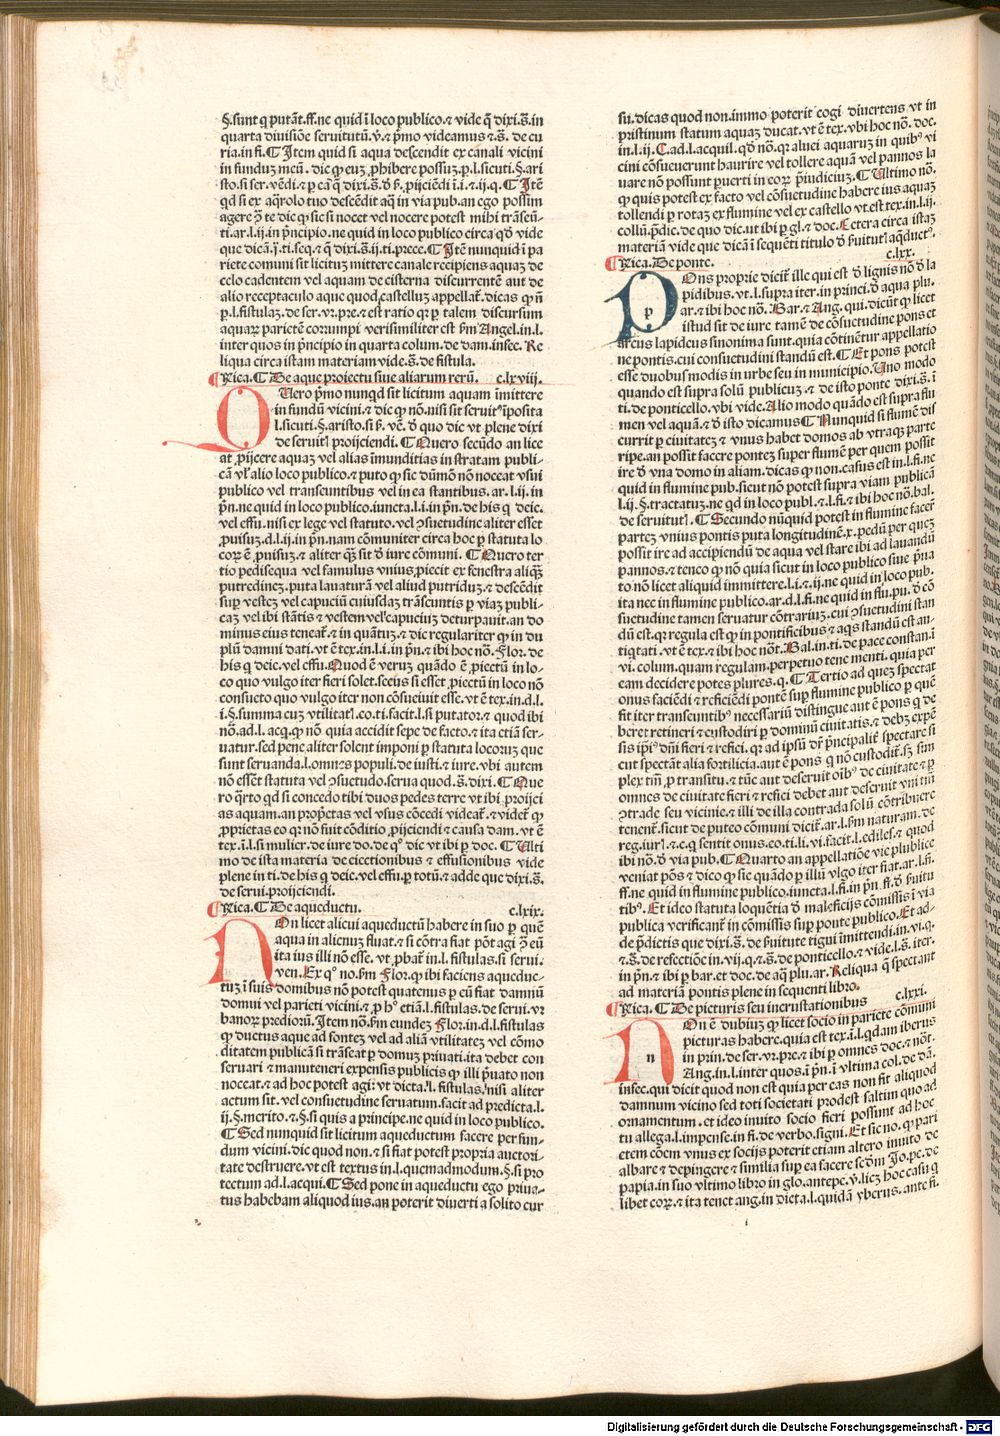 §.sunt q putāt.ff.ne quid ī loco publico.⁊ vide q̄ dixi.s̄.in
quarta diuisiōe seruitutū.v̄.⁊ p̄mo videamus ⁊.s̄. de cu
ria.in fi. ¶ Item quid si aqua descendit ex canali vicini
in funduꝫ meū. dic ꝙ euꝫ ꝓhibere possuꝫ.p.l.sicuti.§.ari
sto.si ser.vēdi.⁊ p ea q̄ dixi.s̄.ð ẜ. ꝓijciēdi ī.i.⁊.ij.q. ¶ Itē
qd si ex aq̄rolo tuo descēdit aq̄ in via pub.an ego possum
agere ꝯ̄ te dic ꝙ sic si nocet vel nocere potest mihi trāseū-
ti.ar.l.ij.in p̄ncipio.ne quid in loco publico circa qð vide
que dicā.j̄.ti.seq.⁊ q̄ dixi.s̄.ij.ti.prece. ¶ Itē nunquid ī pa
riete comuni sit licituꝫ mittere canale recipiens aquaꝫ de
celo cadentem vel aquam de cisterna discurrentē aut de
alio receptaculo aque quod castelluꝫ appellat᷑. dicas ꝙ n̄
p.l.fistulaꝫ.de ser.vr.pre.⁊ est ratio qꝛ p talem discursum
aquaꝝ parietē corrumpi verisimiliter est ẜm Angel.in.l.
inter quos in p̄ncipio in quarta colum.de dam.infec. Re
liqua circa istam materiam vide.s̄.de fistula.
¶ Rica. ¶ De aque proiectu siue aliarum rerū. c.lxviij.
QUero p̄mo nunqd sit licitum aquam īmittere
in fundū vicini.⁊ dic ꝙ nō.nisi sit seruit⁹ īposita
l.sicuti.§.aristo.si ẜ. vē. ð quo dic vt plene dixi
de seruit᷑ proijciendi. ¶ Quero secūdo an lice
at ꝓijcere aquaꝫ vel alias īmunditias in stratam publi-
cā vl᷑ alio loco publico.⁊ puto ꝙ sic dūmō nō noceat vsui
publico vel transeuntibus vel in ea stantibus.ar.l.ij.in
p̄n.ne quid in loco publico.iuncta.l.i.in p̄n.de his q deic.
vel effu.nisi ex lege vel statuto.vel ꝯsuetudine aliter esset
ꝓuisuꝫ.d.l.ij.in p̄n.nam cōmuniter circa hoc p statuta lo
coꝝ ē ꝓuisuꝫ.⁊ aliter qꝫ sit ð iure cōmuni. ¶ Quero ter
tio pedisequa vel famulus vnius ꝓiecit ex fenestra aliqꝫ
putredineꝫ.puta lauaturā vel aliud putriduꝫ.⁊ descēdit
sup vesteꝫ vel capuciū cuiusdaꝫ trāseuntis p viaꝫ publi-
caꝫ vel ibi stātis ⁊ vestem vel᷑ capuciuꝫ deturpauit.an do
minus eius teneat᷑.⁊ in quātuꝫ.⁊ dic regulariter ꝙ in du
plū damni dati.vt ē tex.in.l.i.in p̄n.⁊ ibi hoc nō. Flor.de
his q deic.vel effu. Quod ē veruꝫ quādo ē ꝓiectū in lo-
co quo vulgo iter fieri solet.secus si esset ꝓiectū in loco nō
consueto quo vulgo iter non cōsueuit esse. vt ē tex.in.d.l.
i.§.summa cuꝫ vtilitat᷑.eo.ti.facit.l.si putator.⁊ quod ibi
nō.ad.l.acq̄.ꝙ nō quia accidit sepe de facto.⁊ ita etiā ser-
uatur.sed pene aliter solent imponi p statuta locoruꝫ que
sunt seruanda.l.omnes populi.de iusti.⁊ iure.vbi autem
nō essēt statuta vel ꝯsuetudo.serua quod.s̄.dixi. ¶ Que
ro q̄rto qd si concedo tibi duos pedes terre vt ibi ꝓijci
as aquam.an prop̄etas vel vsus cōcedi videat᷑.⁊ videt᷑ ꝙ
ꝓprietas eo qꝛ nō fuit cōditio ꝓijciendi ⁊ causa dam. vt ē
tex.ī.l.si mulier.de iure do.de q⁰ dic vt ibi p doc. ¶ Ulti
mo de ista materia de eiectionibus ⁊ effusionibus vide
plene in ti.de his q deic.vel effu.p totū.⁊ adde que dixi.s̄.
de serui.proijciendi.
¶ Rica. ¶ De aqueductu. c.lxix.
NOn licet alicui aqueductū habere in suo p quē
aqua in alienuꝫ fluat.⁊ si cōtra fiat pōt agi ꝯ̄ eū
ita ius illi nō esse. vt ꝓbat᷑ in.l. fistulas.si serui.
ven. Ex q⁰ no.ẜm Flor.ꝙ ibi faciens aquedue-
tuꝫ ī suis domibus nō potest quatenus p eū fiat damnū
domui vel parieti vicini.⁊ ꝓ h⁰ etiā.l.fistulas.de serui.vr
banoꝝ prediorū. Item nō.ẜm eundeꝫ Flor.in.d.l.fistulas
ꝙ ductus aque ad fontes vel ad aliā vtilitateꝫ vel cōmo
ditatem publicā si trāseat p domuꝫ priuati.ita debet con
seruari ⁊ manuteneri expensis publicis ꝙ illi p̄uato non
noceat.⁊ ad hoc potest agi: vt dicta.l. fistulas.nisi aliter
actum sit.vel consuetudine seruatum.facit ad predicta.l.
ij.§.merito.⁊.§.si quis a principe.ne quid in loco publico.
¶ Sed nunquid sit licitum aqueductum facere per fun-
dum vicini.dic quod non.⁊ si fiat potest propria auctori-
tate destruere.vt est textus in.l.quemadmodum.§.si pro
tectum ad.l.acqui. ¶ Sed pone in aqueductu ego priua-
tus habebam aliquod ius.an poterit diuerti a solito cur
su.dicas quod non.immo poterit cogi diuertens vt in
pristinum statum aquaꝫ ducat.vt ē tex.vbi hoc nō.doc.
in.l.ij. C.ad.l.acquil.qð nō.qꝛ aluei aquaruꝫ in quib⁹ vi
cini cōsueuerunt haurire vel tollere aquā vel pannos la
uare nō possunt puerti in eoꝝ p̄iudiciuꝫ. ¶ Ultimo nō.
ꝙ quis potest ex facto vel cōsuetudine habere ius aquaꝫ
tollendi p rotaꝫ ex flumine vel ex castello vt est tex.in.l.ij.
collū.p̄dic.de quo dic.vt ibi p gl.⁊ doc. Cetera circa istaꝫ
materiā vide que dicā ī sequēti titulo ð ẜuitut᷑ aq̄duct⁹.
¶ Rica. De ponte. c.lxx.
PONs proprie dicit᷑ ille qui est ð lignis nō ð la
pidibus.vt.l.supra iter.in princi.ð aqua plu.
ar.⁊ ibi hoc nō. Bar.⁊ Ang. qui.dicūt ꝙ licet
istud sit de iure tamē de cōsuetudine pons et
arcus lapideus sinonima sunt.quia cōtinētur appellatio
ne pontis.cui consuetudini standū est. ¶ Et pons potest
esse duobus modis in vrbe seu in municipio. Uno modo
quando est supra solū publicuꝫ ⁊ de isto ponte dixi.s̄. ī
ti.de ponticello.vbi vide. Alio modo quādo est supra flu
men vel aquā.⁊ ð isto dicamus ¶ Nunquid si flumē dis
currit p ciuitateꝫ ⁊ vnus habet domos ab vtraqꝫ parte
ripe.an possit facere ponteꝫ super flumē per quem possit
ire ð vna domo in aliam.dicas ꝙ non.casus est in.l.fi.ne
quid in flumine pub.sicut nō potest supra viam publicā
l.ij.§.tractatuꝫ.ne qd in loco publ.⁊.l.fi.⁊ ibi hoc nō.bal.
de seruitut᷑. ¶ Secundo nūquid potest in flumine facer
parteꝫ vnius pontis puta longitudinē.x.pedū per queꝫ
possit ire ad accipiendū de aqua vel stare ibi ad lauandū
pannos.⁊ tenco ꝙ nō quia sicut in loco publico siue p̄ua
to nō licet aliquid immittere.l.i.⁊.ij.ne quid in loco pub.
ita nec in flumine publico.ar.d.l.fi.ne quid in flu.pu. ð cō
suetudine tamen seruatur cōtrariuꝫ.cui ꝯsuetudini stan
dū est.qꝛ regula est ꝙ in pontificibus ⁊ aqs standū est an-
tiq̄tati .vt ē tex.⁊ ibi hoc nōt. Bal.in.ti.de pace constan.ī
vi.colum.quam regulam.perpetuo tene menti.quia per
eam decidere potes plures.q. ¶ Tertio ad queꝫ spectat
onus faciēdi ⁊ reficiēdi pontē sup flumine publico p quē
fit iter transeuntib⁹ necessariū distingue aut ē pons q de
beret retineri ⁊ custodiri p dominū ciuitatis.⁊ debꝫ expē
sis ip̄i⁹ dn̄i fieri ⁊ refici.qꝛ ad ip̄sū dr̄ p̄ncipalit᷑ spectare si
cut spectāt alia fortilicia.aut ē pons q nō custodit᷑.sꝫ sim
plex tm̄ ꝓ transitu.⁊ tūc aut deseruit oīb⁹ de ciuitate ⁊ p
omnes de ciuitate fieri ⁊ refici debet aut deseruit vni tm̄
ꝯtrade seu vicinie.⁊ illi de illa contrada solū cōtribuere
tenent᷑.sicut de puteo cōmuni dicit᷑.ar.l.ẜm naturam.de
reg.iur᷑.⁊.c.q̄ sentit onus.eo.ti.li.vi.facit.l.ediles.⁊ quod
ibi nō.ð via pub. ¶ Quarto an appellatiōe vie plublice
veniat pōs ⁊ dico ꝙ sic quādo p illū vlgo iter fiat.ar.l.fi.
ff.ne quid in flumine publico.iuncta.l.fi.in p̄n.fi.ð ẜuitu
tib⁹. Et ideo statuta loquētia ð maleficijs cōmissis ī via
publica verificant᷑ in cōmissis sup ponte publico. Et ad-
de p̄dictis que dixi.s̄. de ẜuitute tigni īmittendi.in.vi.q.
⁊.s̄.de refectiōe in.vij.q.⁊.s̄. de ponticello.⁊ vide.l.s̄. iter.
in p̄n.⁊ ibi p bar.et doc.de aq̄ plu.ar. Reliqua q̄ spectant
ad materiā pontis plene in sequenti libro.
¶ Rica. ¶ De picturis seu incrustationibus c.lxxi.
NOn ē dubiuꝫ ꝙ licet socio in pariete cōmuni
picturas habere.quia est tex.ī.l.qdam iberus
in prin.de ser.vr.pre.⁊ ibi p omnes doc.⁊ nōt.
Ang.in.l.inter quos.ī p̄n.ī vltima col.de dā.
infec.qui dicit quod non est quia per eas non fit aliquod
damnum vicino sed toti societati prodest saltim quo ad
ornamentum.et ideo inuito socio fieri possunt ad hoc
tu allega.l.impense.in fi.de verbo.signi. Et sic no.ꝙ pari
etem cōem vnus ex socijs poterit etiam altero inuito de
albare ⁊ depingere ⁊ similia sup ea facere sedm Jo.pe.de
papia.in suo vltimo libro in glo.antepe.v̄.licꝫ hoc casu q
libet coꝝ.⁊ ita tenet ang.in dicta.l.quidā yberus.ante fi.
Digitalisierung gefördert durch die Deutsche Forschungsgemeinschaft - DFG